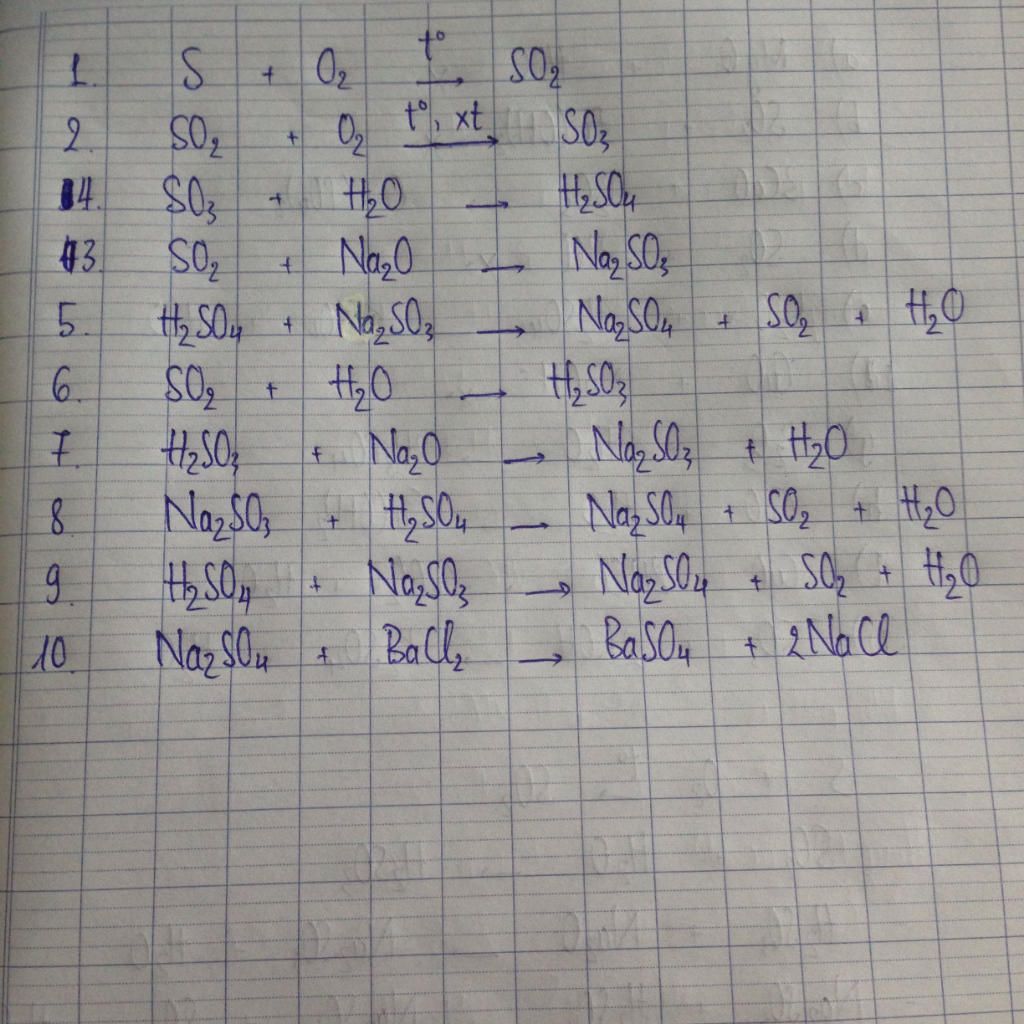 1. S + O₂ t° → SO₂
2. SO₂ + O₂ t°, xt → SO₃
4. SO₃ + H₂O → H₂SO₄
3. SO₂ + Na₂O → Na₂SO₃
5. H₂SO₄ + Na₂SO₃ → Na₂SO₄ + SO₂ + H₂O
6. SO₂ + H₂O → H₂SO₃
7. H₂SO₃ + Na₂O → Na₂SO₃ + H₂O
8 Na₂SO₃ + H₂SO₄ → Na₂SO₄ + SO₂ + H₂O
9. H₂SO₄ + Na₂SO₃ → Na₂SO₄ + SO₂ + H₂O
10. Na₂SO₄ + BaCl₂ → BaSO₄ + 2NaCl